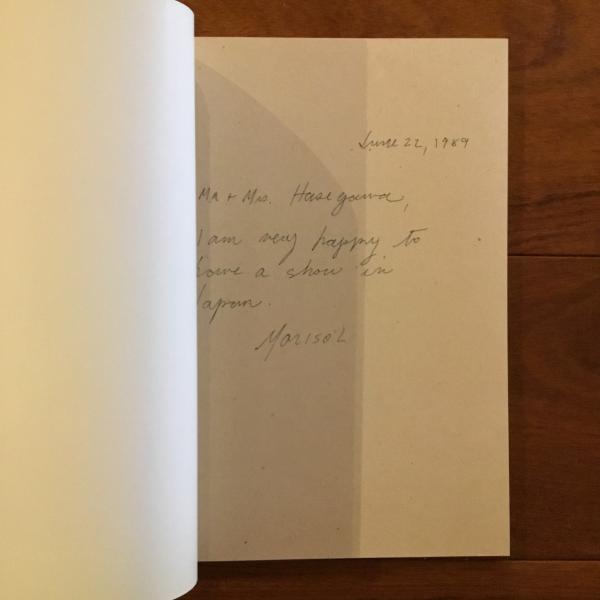 June 22, 1989
Mr + Mrs. Hasegawa,
I am very happy to
have a show in
Japan.
Marisol